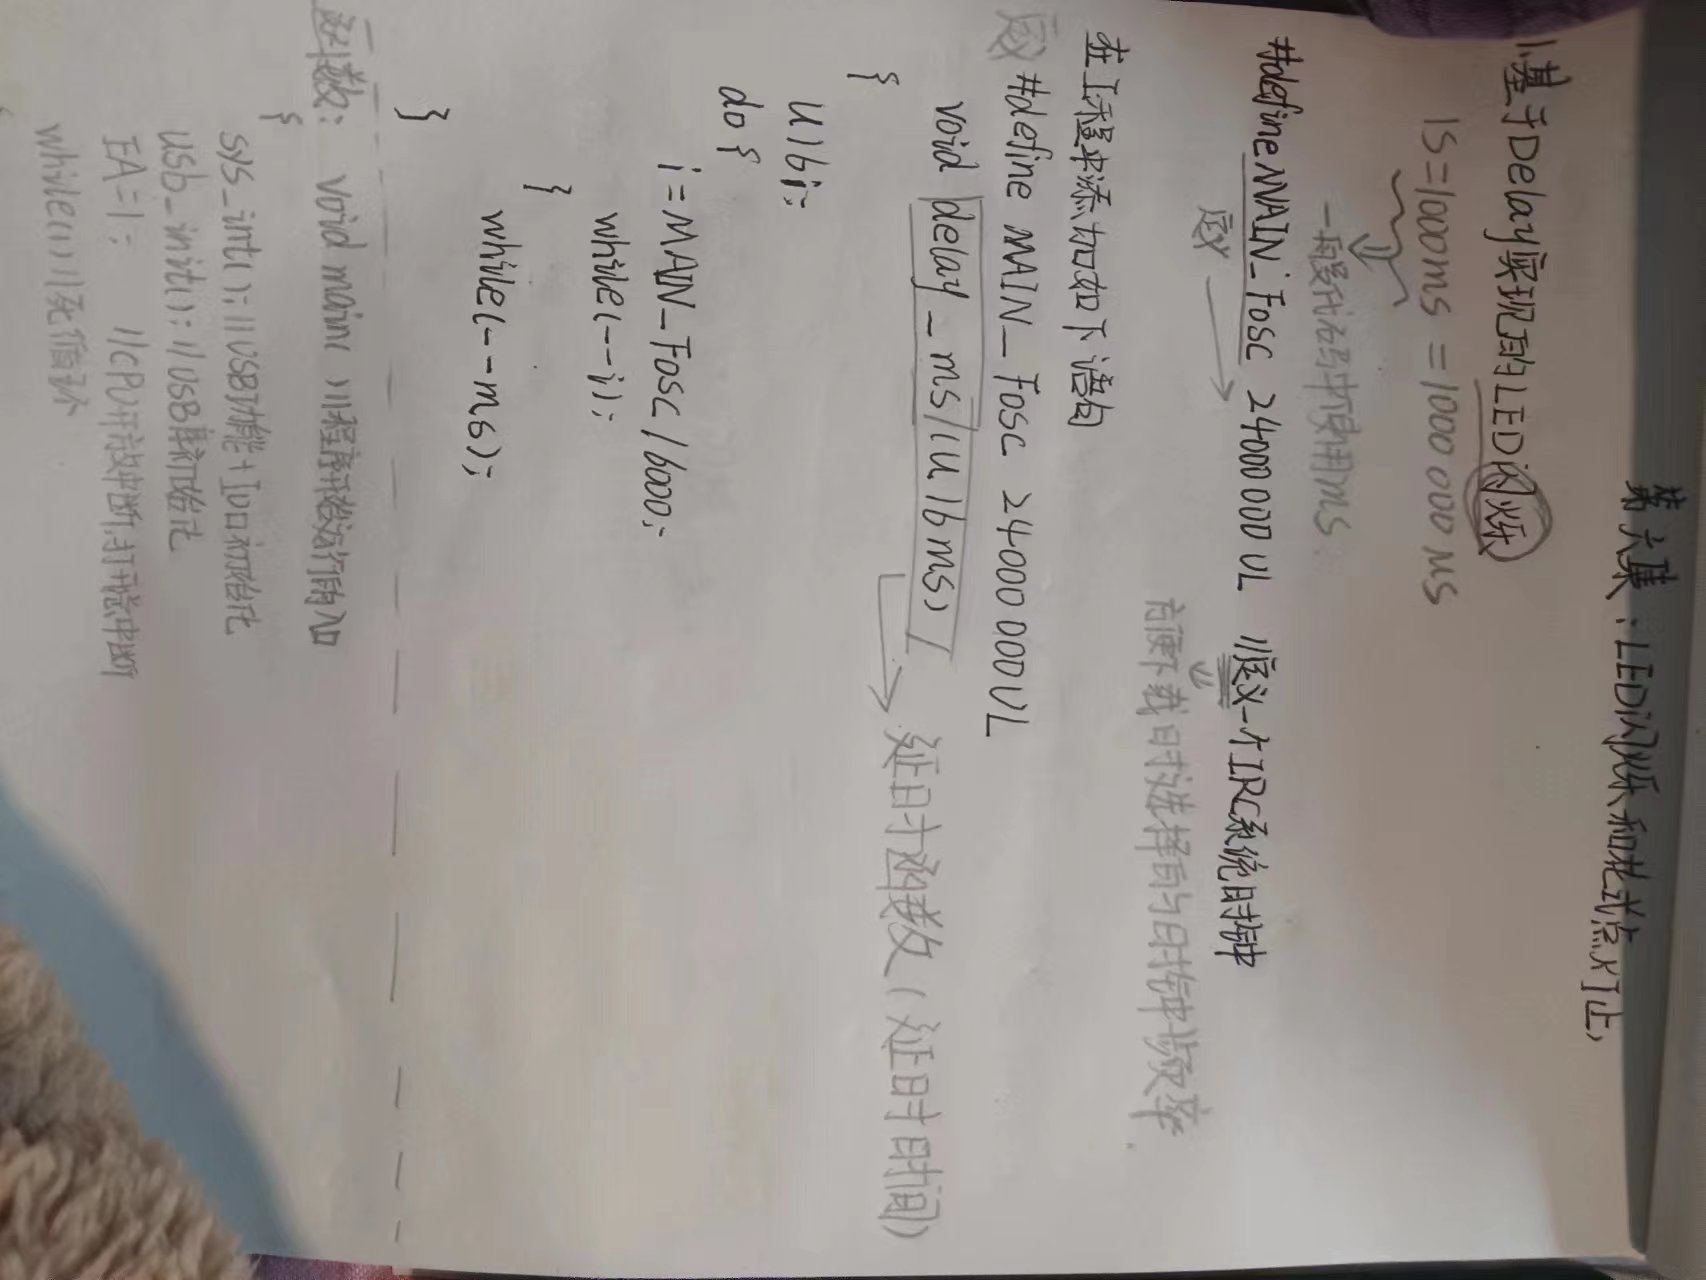 第六集：LED闪烁和花式点灯
1.基于Delay实现的LED闪烁
1S=1000ms=1000 000 us
一般我们都使用ms
#define MAIN_Fosc 24000000UL //定义一个IRC系统时钟
定义
方便下载时选择的时钟频率
在工程中添加如下语句
定义 #define MAIN_Fosc 24000 000UL
void delay_ms(u16 ms)
延时函数(延时时间)
{
u16 i;
do {
i=MAIN_Fosc/6000;
while(--i);
}
while(--ms);
}
函数: void main( ) //程序开始运行的入口
{
sys_int(); //USB功能+IO口初始化
usb_init(); //USB库初始化
EA=1; //CPU开放中断,打开总中断
while(1) //死循环